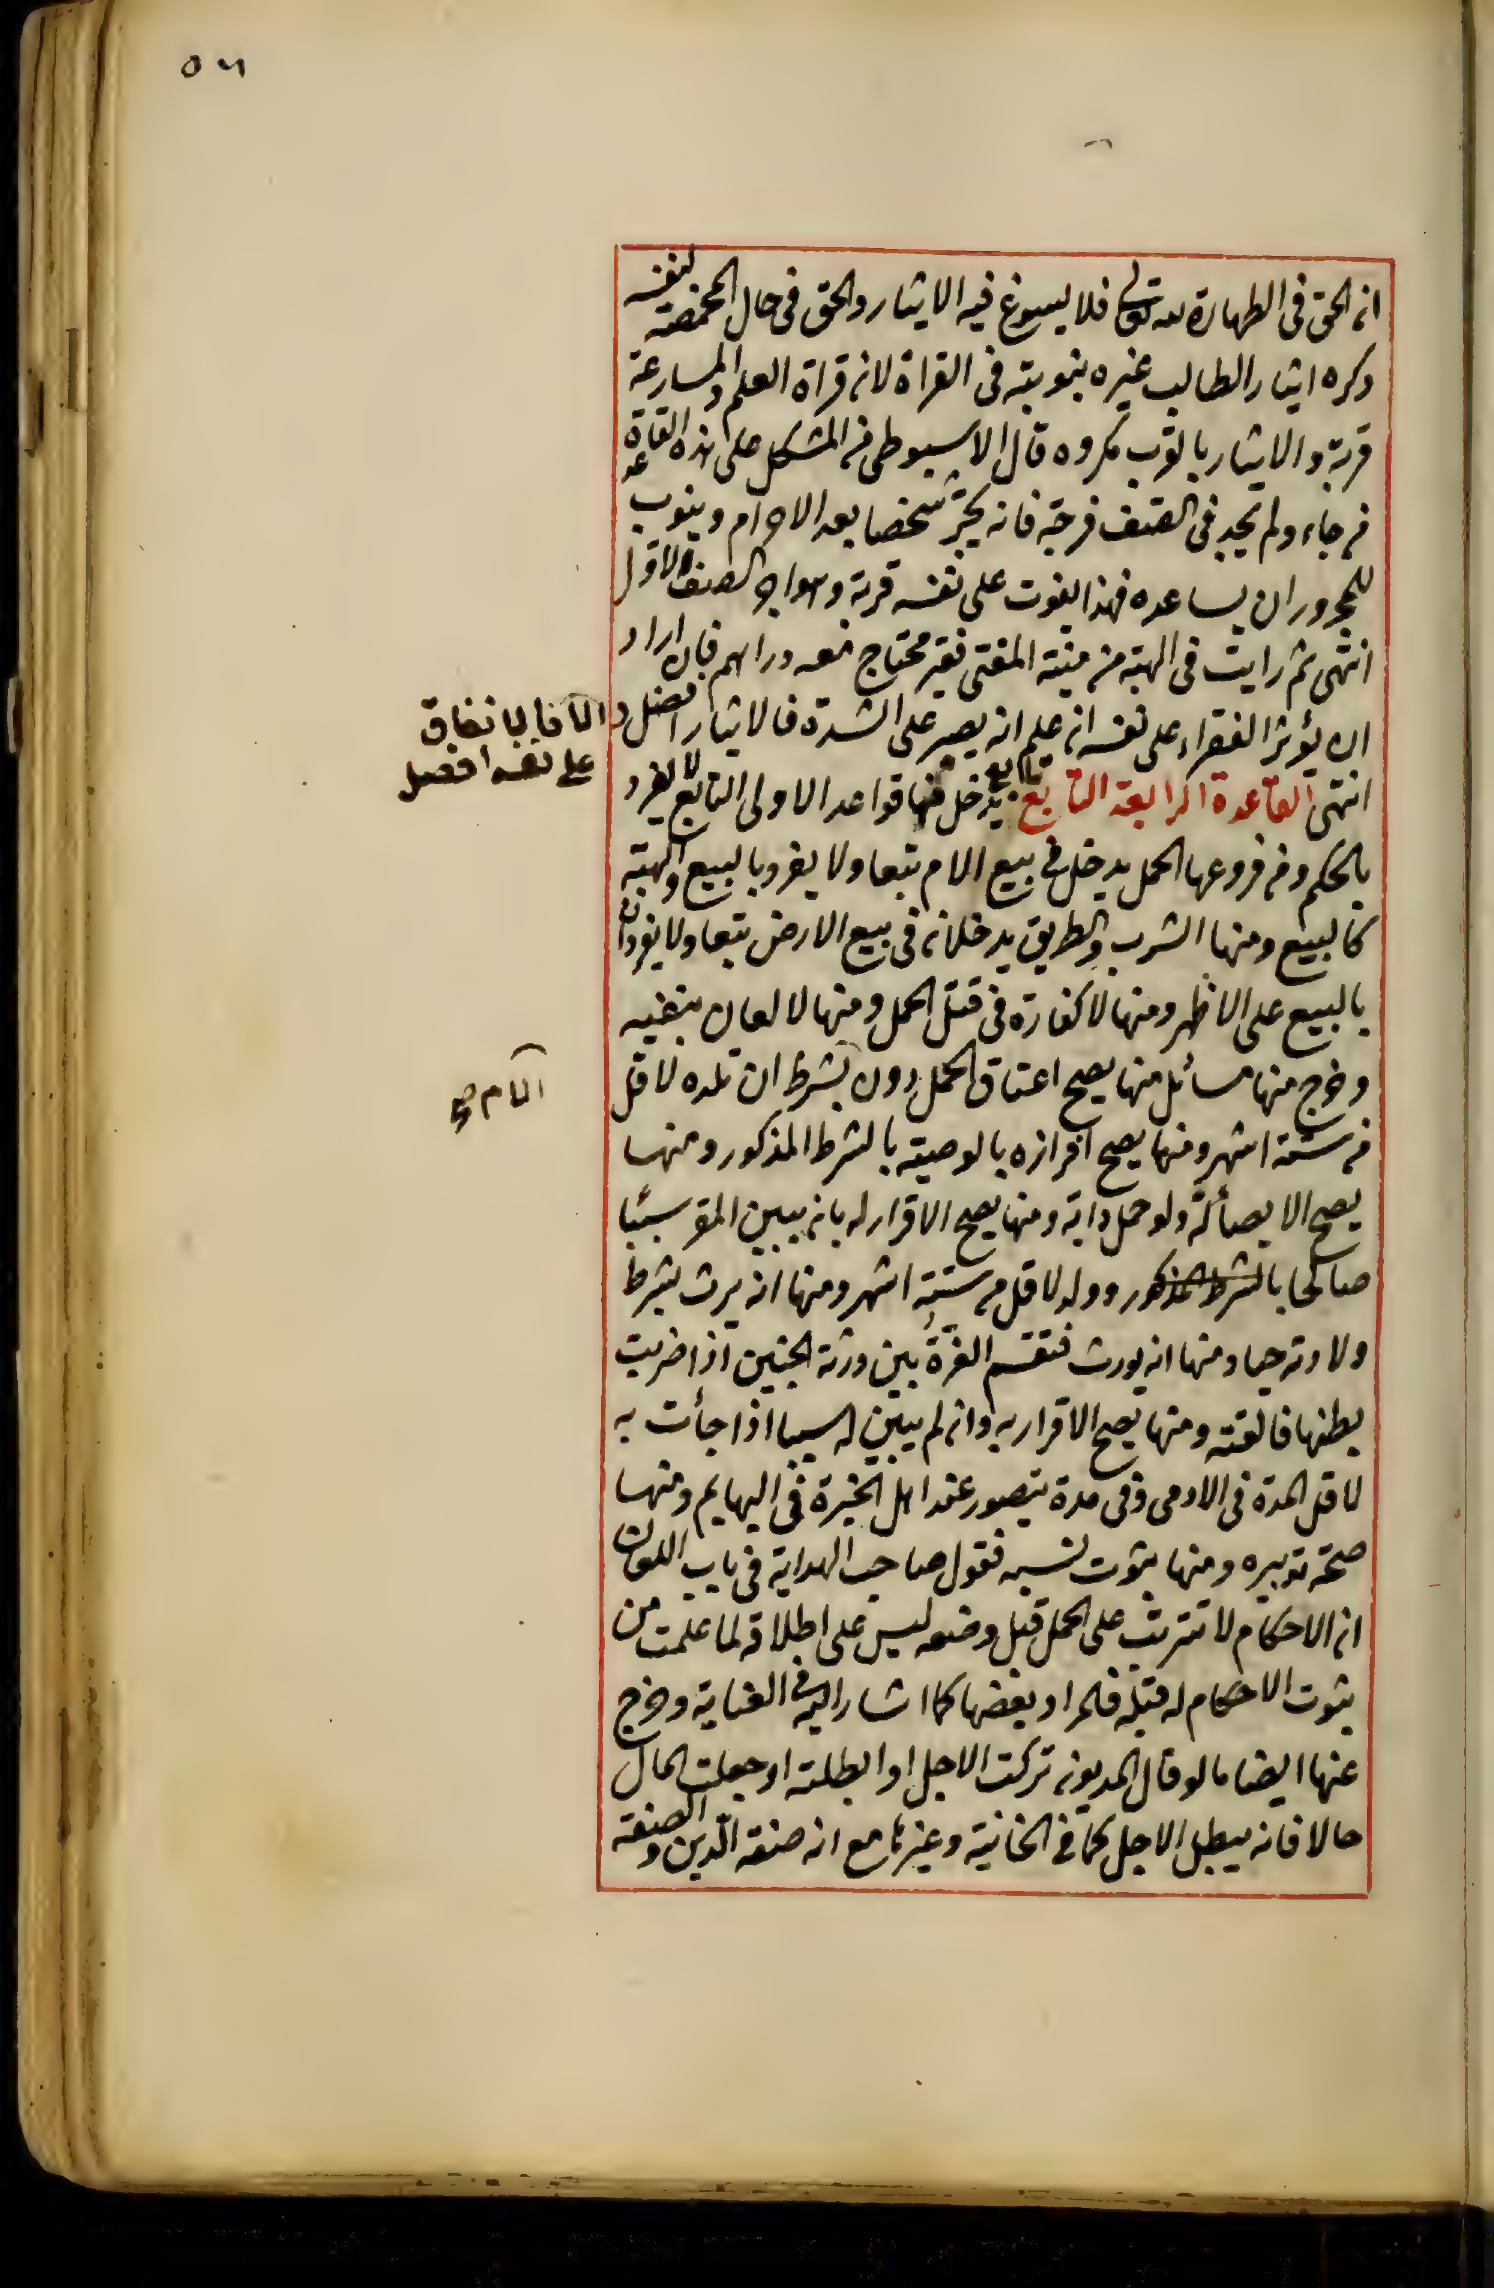 ٥٦
ان الحق فى الطهارة لله تعالى فلا يسوغ فيه الايثار والحق فى حال المخمصة لنفسه
وكره ايثار الطالب غيره بنوبته فى القراة لان قراة العلم والمسارعة
قربة والايثار بالقرب مكروه قال الاسيوطى من المشكل على هذه القاعدة
من جاء ولم يجد فى الصف فرجة فانه يجر شخصا بعد الاحرام وينوب
للمجرور ان يساعده فهذا يفوت على نفسه قربة وهو اجر الصف الاول
انتهى ثم رايت فى الهبة من منية المفتى فقير محتاج معه دراهم فان اراد
ان يؤثر الفقراء على نفسه ان علم انه يصبر على الشدة فالايثار افضل و
الا فالانفاق
على نفسه افضل
انتهى القاعدة الرابعة التابع تابع يدخل فيها قواعد الاولى التابع لا يفرد
بالحكم ومن فروعها الحمل يدخل فى بيع الام تبعا ولا يفرد بالبيع والهبة
كالبيع ومنها الشرب والطريق يدخلان فى بيع الارض تبعا ولا يفردان
بالبيع على الاظهر ومنها لا كفارة فى قتل الحمل ومنها لا لعان بنفيه
وخرج منها مسائل منها يصح اعتاق الحمل دون بشرط ان تلده لاقل
الام صح
من ستة اشهر ومنها يصح افرازه بالوصية بالشرط المذكور ومنها
يصح الايصأ له ولو حمل دابة ومنها يصح الاقرار له بان يبين المقر سببا
صالحا بالشرط المذكور وولد لاقل من ستة اشهر ومنها انه يرث بشرط
ولادته حيا ومنها انه يورث فتقسم الغرة بين ورثة الجنين اذا ضربت
بطنها فالقته ومنها يصح الاقرار به وان لم يبين له سببا اذا جأت به
لاقل المدة فى الادمى وفى مدة يتصور عند اهل الخبرة فى البهايم ومنها
صحة تدبيره ومنها ثبوت نسبه فقول صاحب الهداية فى باب اللعان
ان الاحكام لا تترتب على الحمل قبل وضعه ليس على اطلاقه لما علمت من
ثبوت الاحكام له قبله فلمراد بعضها كما اشار اليه فى العناية وخرج
عنها ايضا ما لو قال المديون تركت الاجل او ابطلته او جعلت المال
حالا فانه يبطل الاجل كما فى الخانية وغيرها مع انه صفة الدين والصفة